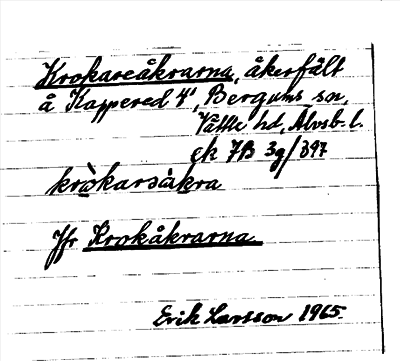 Krokareåkrarna, åkerfält
å Kappered 4¹, Bergums sn,
Vättle hd, Älvsb. l.
ek 7B 3g/397
kròkarsàkra
Jfr Krokåkrarna
Erik Larsson 1965.